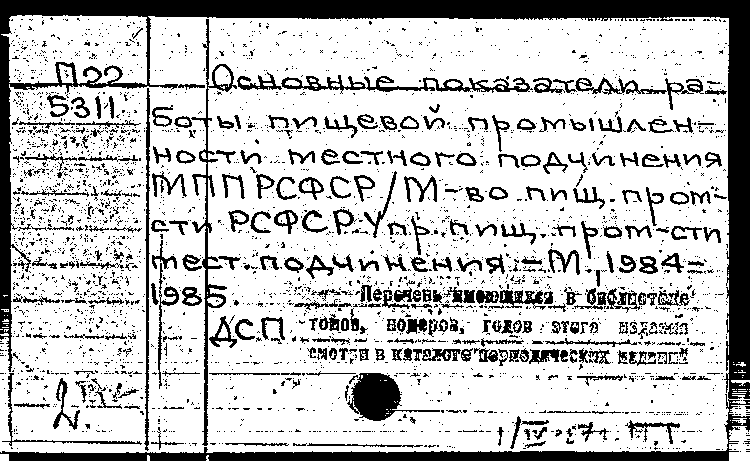 П22
5311
Основные показатели ра-
боты пищевой промышлен-
ности местного подчинения
МПП РСФСР/М-во пищ. пром-
сти РСФСР. Упр. пищ. пром-сти
мест. подчинения. - М., 1984-
1985.
Перечень имеющихся в библиотеке
ДСП. томов, номеров, годов этого издания
смотри в каталоге периодических изданий
2.